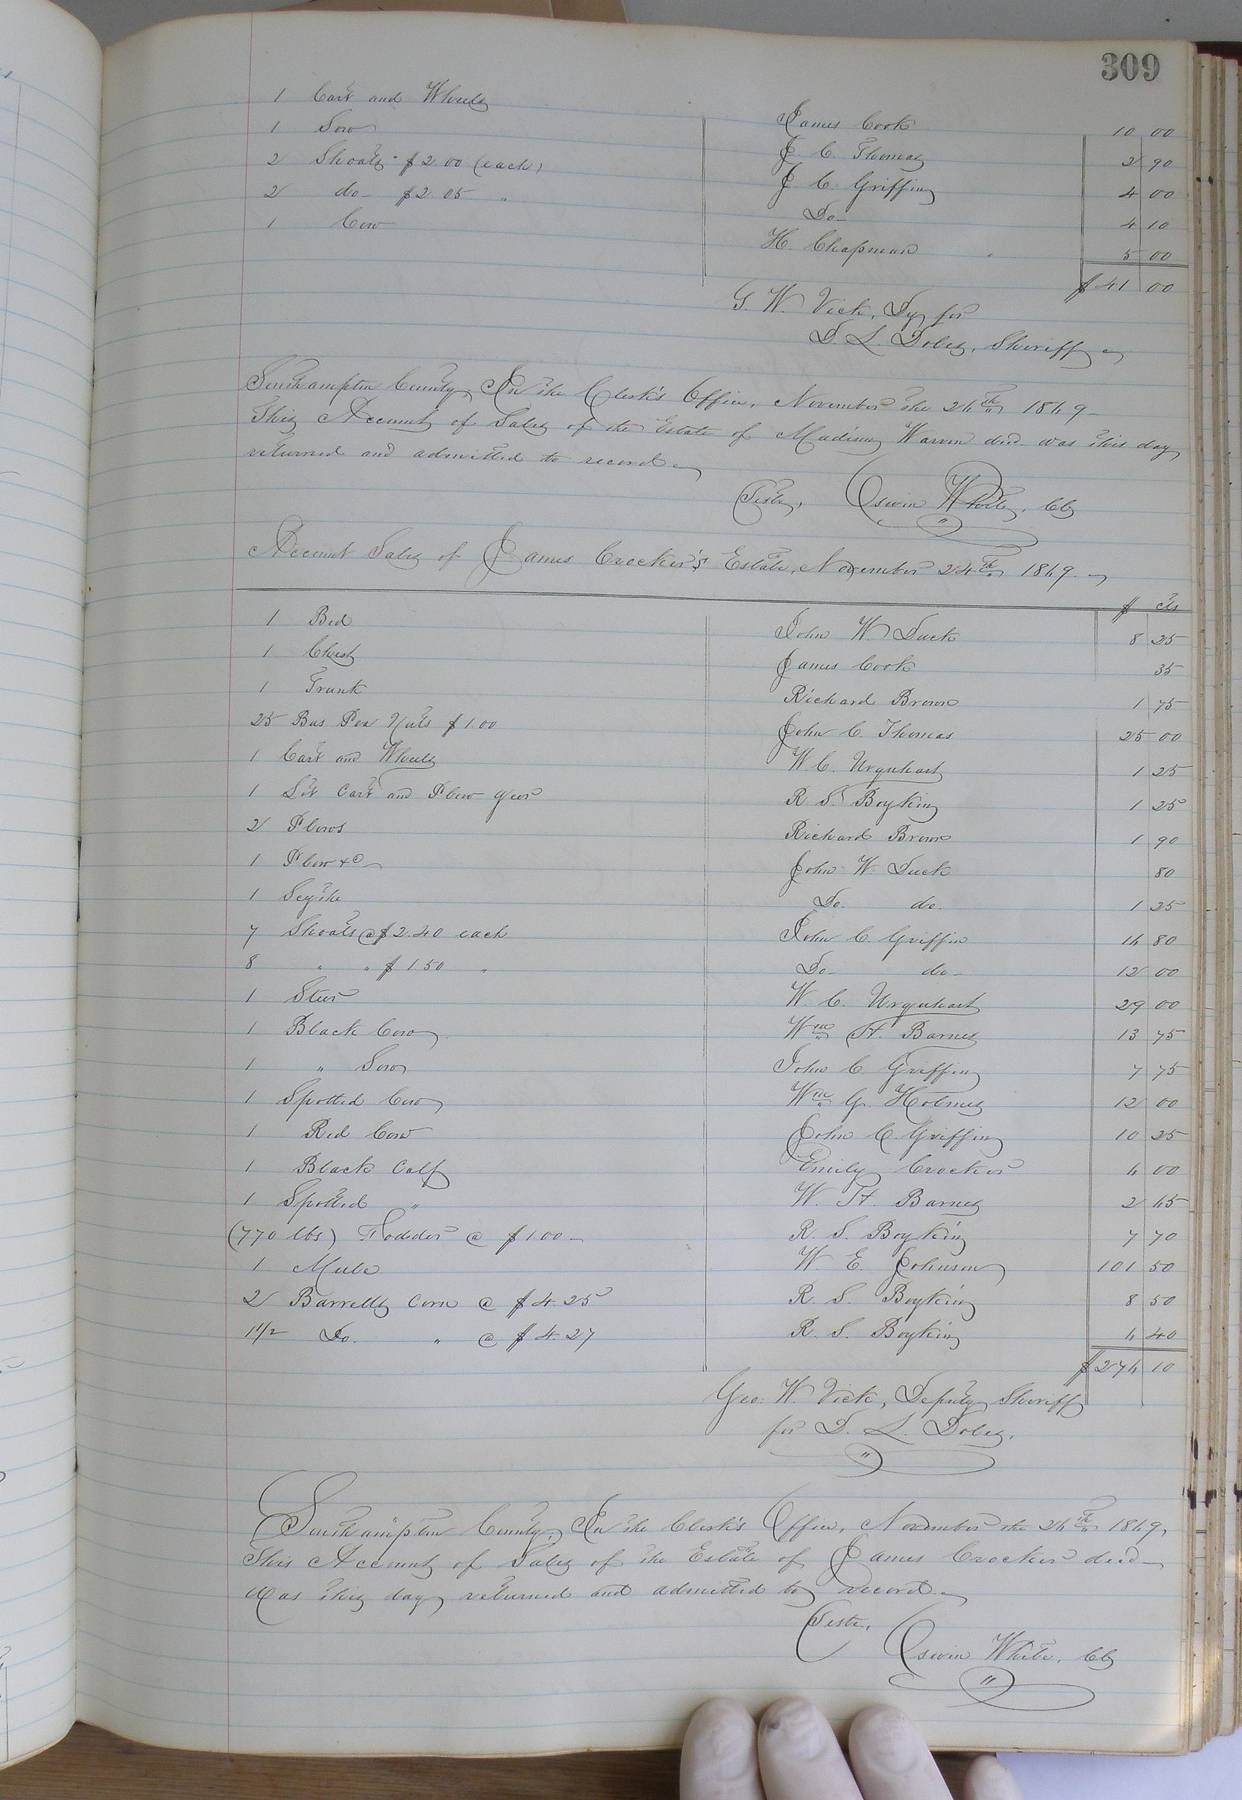 309
1 Cart and Wheels James Cook 10 00
1 Sow J C. Thomas 2 90
2 Shoats $2.00 (each) J C. Griffin 4 00
2 do $2.05 " Do 4 10
1 Cow H. Chapman 5 00
$41 00
G. W. Vick, Dy for
D. L. Doles, Sheriff
Southampton County, In the Clerk's Office, November the 24th 1869
This Account of Sales of the Estate of Madison Warren decd was this day
returned and admitted to record
Teste, Oswin White, Clk
Account Sales of James Crocker's Estate, November 24th 1869
$ cts
1 Bed John W. Duck 8 25
1 Chest James Cook 35
1 Trunk Richard Brown 1 75
25 Bus Pea Nuts $1.00 John C Thomas 25 00
1 Cart and Wheels W. C. Urquhart 1 25
1 Lot Cart and Plow gear R. S. Boykin 1 25
2 Plows Richard Brown 1 90
1 Plow &c John W. Duck 80
1 Scythe Do. do. 1 25
7 Shoats @ $2.40 each John C Griffin 16 80
8 " " $1.50 " Do do 12 00
1 Steer W. C. Urquhart 29 00
1 Black Cow Wm H. Barnes 13 75
1 " Sow John C Griffin 7 75
1 Spotted Cow Wm G. Holmes 12 00
1 Red Cow John C. Griffin 10 25
1 Black Calf Emily Crocker 6 00
1 Spotted " W. H. Barnes 2 65
(770 lbs) Fodder @ $1.00 R. S. Boykin 7 70
1 Mule W E. Johnson 101 50
2 Barrells Corn @ $4.25 R. S. Boykin 8 50
1 1/2 Do. " @ $4.27 R. S. Boykin 6 40
$276 10
Geo. W. Vick, Deputy Sheriff
for D. L. Doles.
Southampton County, In the Clerk's Office, November the 24th 1869,
This Account of Sales of the Estate of James Crocker decd
was this day returned and admitted to record.
Teste, Oswin White, Clk